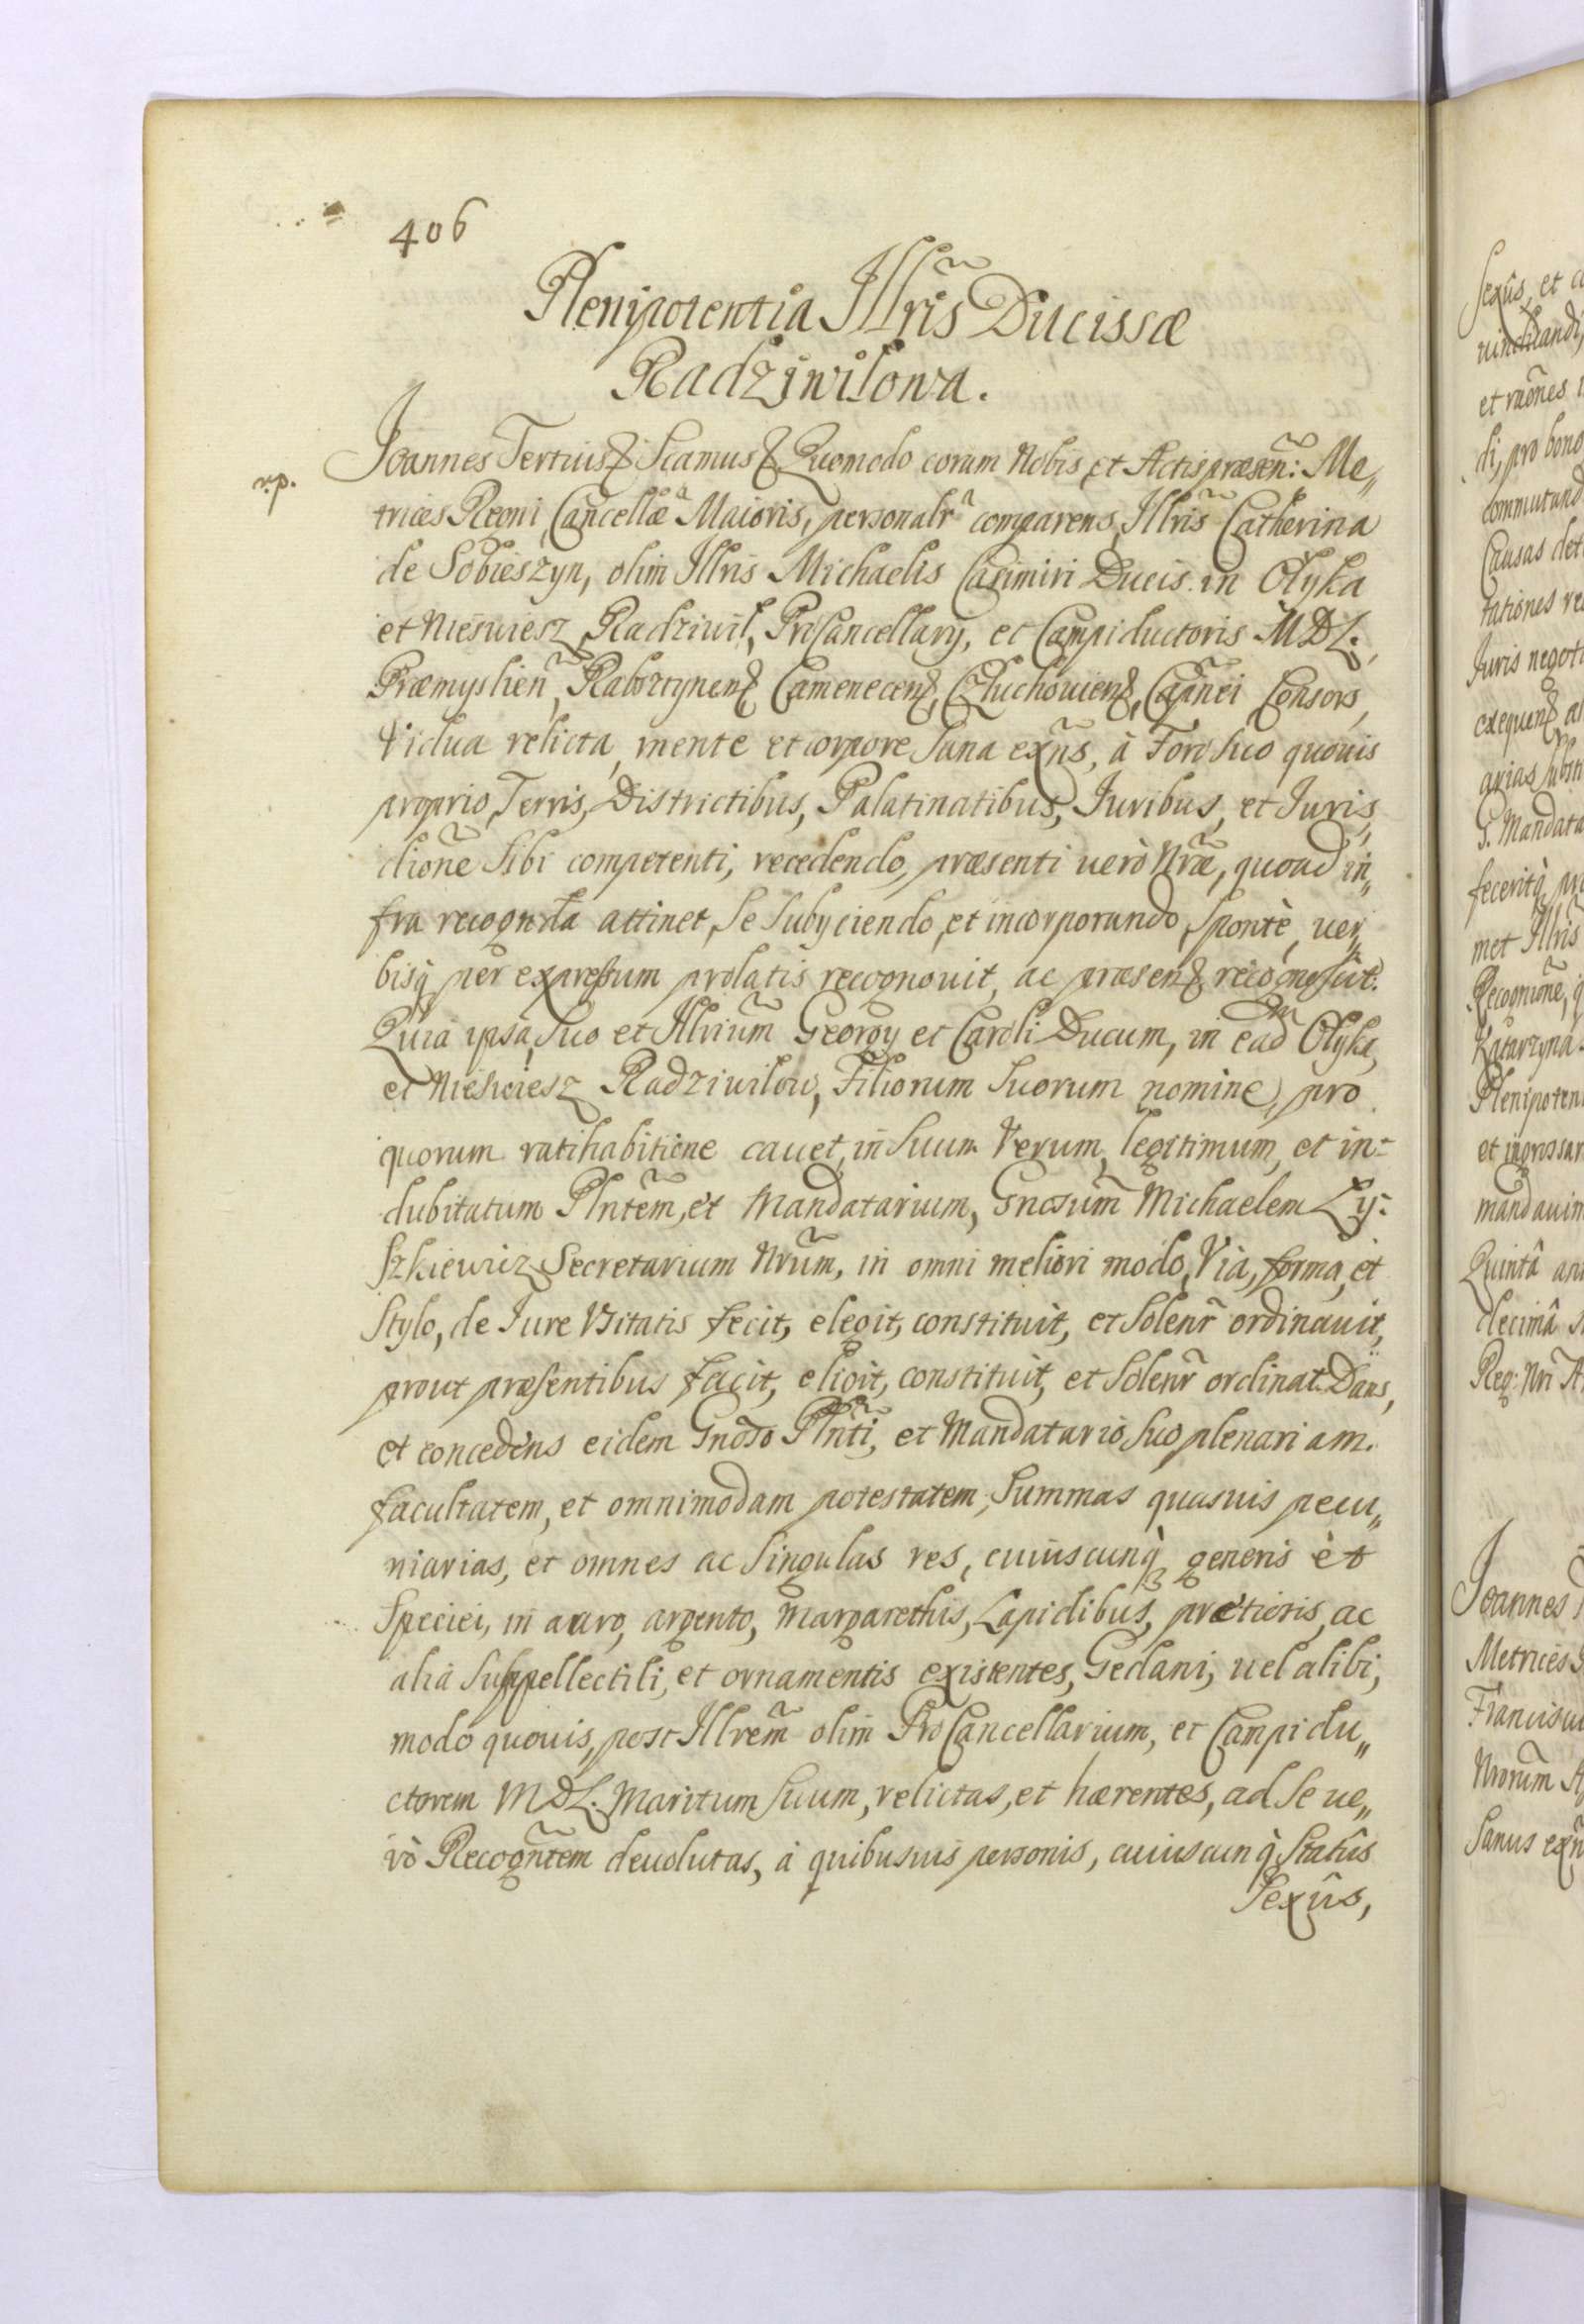 406
Plenipotentia Illris Ducissæ
Radziwiłowa.
Joannes Tertius & Sciamus & Quomodo coram Nobis et Actis præsen: Me„
n.p.
trices Regni Cancellæ Maioris, personalr comparens Illris Catherina
de Sobieszyn, olim Illris Michaelis Casimiri Ducis in Ołyka
et Nieswiesz Radziwił, ProCancellary, et Campiductoris MDL.,
Præmyslien, Rabsztynen, Camenecen, Człuchowien, Capnei Consors,
Vidua relicta, mente et corpore Sana exns, à Foro Suo quovis
proprio, Terris, Districtibus, Palatinatibus, Juribus, et Juris„
dione Sibi competenti, recedendo, præsenti verò Nræ, quoad in„
fra recognta attinet, Se Subyciendo, et incorporando, Spontè, ver„
bisq per expressum prolatis recognovit, ac præsen recognoscit.
Quia ipsa, Suo et Illrium Georgy et Caroli Ducum, in eadm Ołyka,
et Nieswiesz Radziwiłow, Filiorum Suorum nomine, pro
quorum ratihabitione cavet, in Suum Verum, legitimum, et in=
dubitatum Plntem, et Mandatarium, Gnosum Michaelem Ly=
Szkiewicz Secretarium Nrum, in omni meliori modo, Via, forma, et
Stylo, de Jure Vsitatis fecit, elegit, constituit, et Solenr ordinavit,
prout præsentibus facit, eligit, constituit, et Solenr ordinat. Dans,
et concedens eidem Gnoso Plnti, et Mandatario Suo plenariam.
facultatem, et omnimodam potestatem, Summas quasvis pecu„
niarias, et omnes ac Singulas res, cuiuscunq generis et
Speciei, in auro, argento, Margarethis, Lapidibus, prætioris, ac
alia Suppellectili, et ornamentis existentes, Gedani, vel alibi,
modo quovis, post Illrem olim ProCancellarium, et Campidu„
ctorem MDL. Maritum Suum, relictas, et hærentes, ad Se ve„
rò Recogntem devolutas, à quibusvis personis, cuiuscunq Statûs
Sexûs,
Sexûs, et
vindicandi,
et raones
di, pro bono
commutand
Causas det
tationes re
Juris negoti
exequen al
arias Substi
G. Mandata
feceritq pro
met Illris
Recognione, q
Katarzyna
Plenipoten
et ingrossar
mandavim
Quintâ an
decimâ
Reg: Nri
Joannes
Metrices
Francisu
Nrorum
Sanus exn